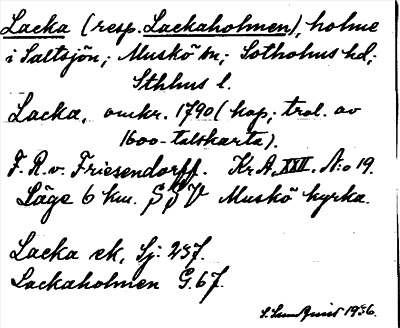 Lacka (resp. Lackaholmen), holme
i Saltsjön; Muskö sn; Sotholms hd;
Sthlms l.
Lacka, omkr. 1790 (kop; trol. av
1600-talskarta).
F. R. v. Friesendorff. Kr.A. XXII. N:o 19.
Läge 6 km. SSV Muskö kyrka.
Lacka ek, Sj: 237.
Lackaholmen G. 67.
1936.